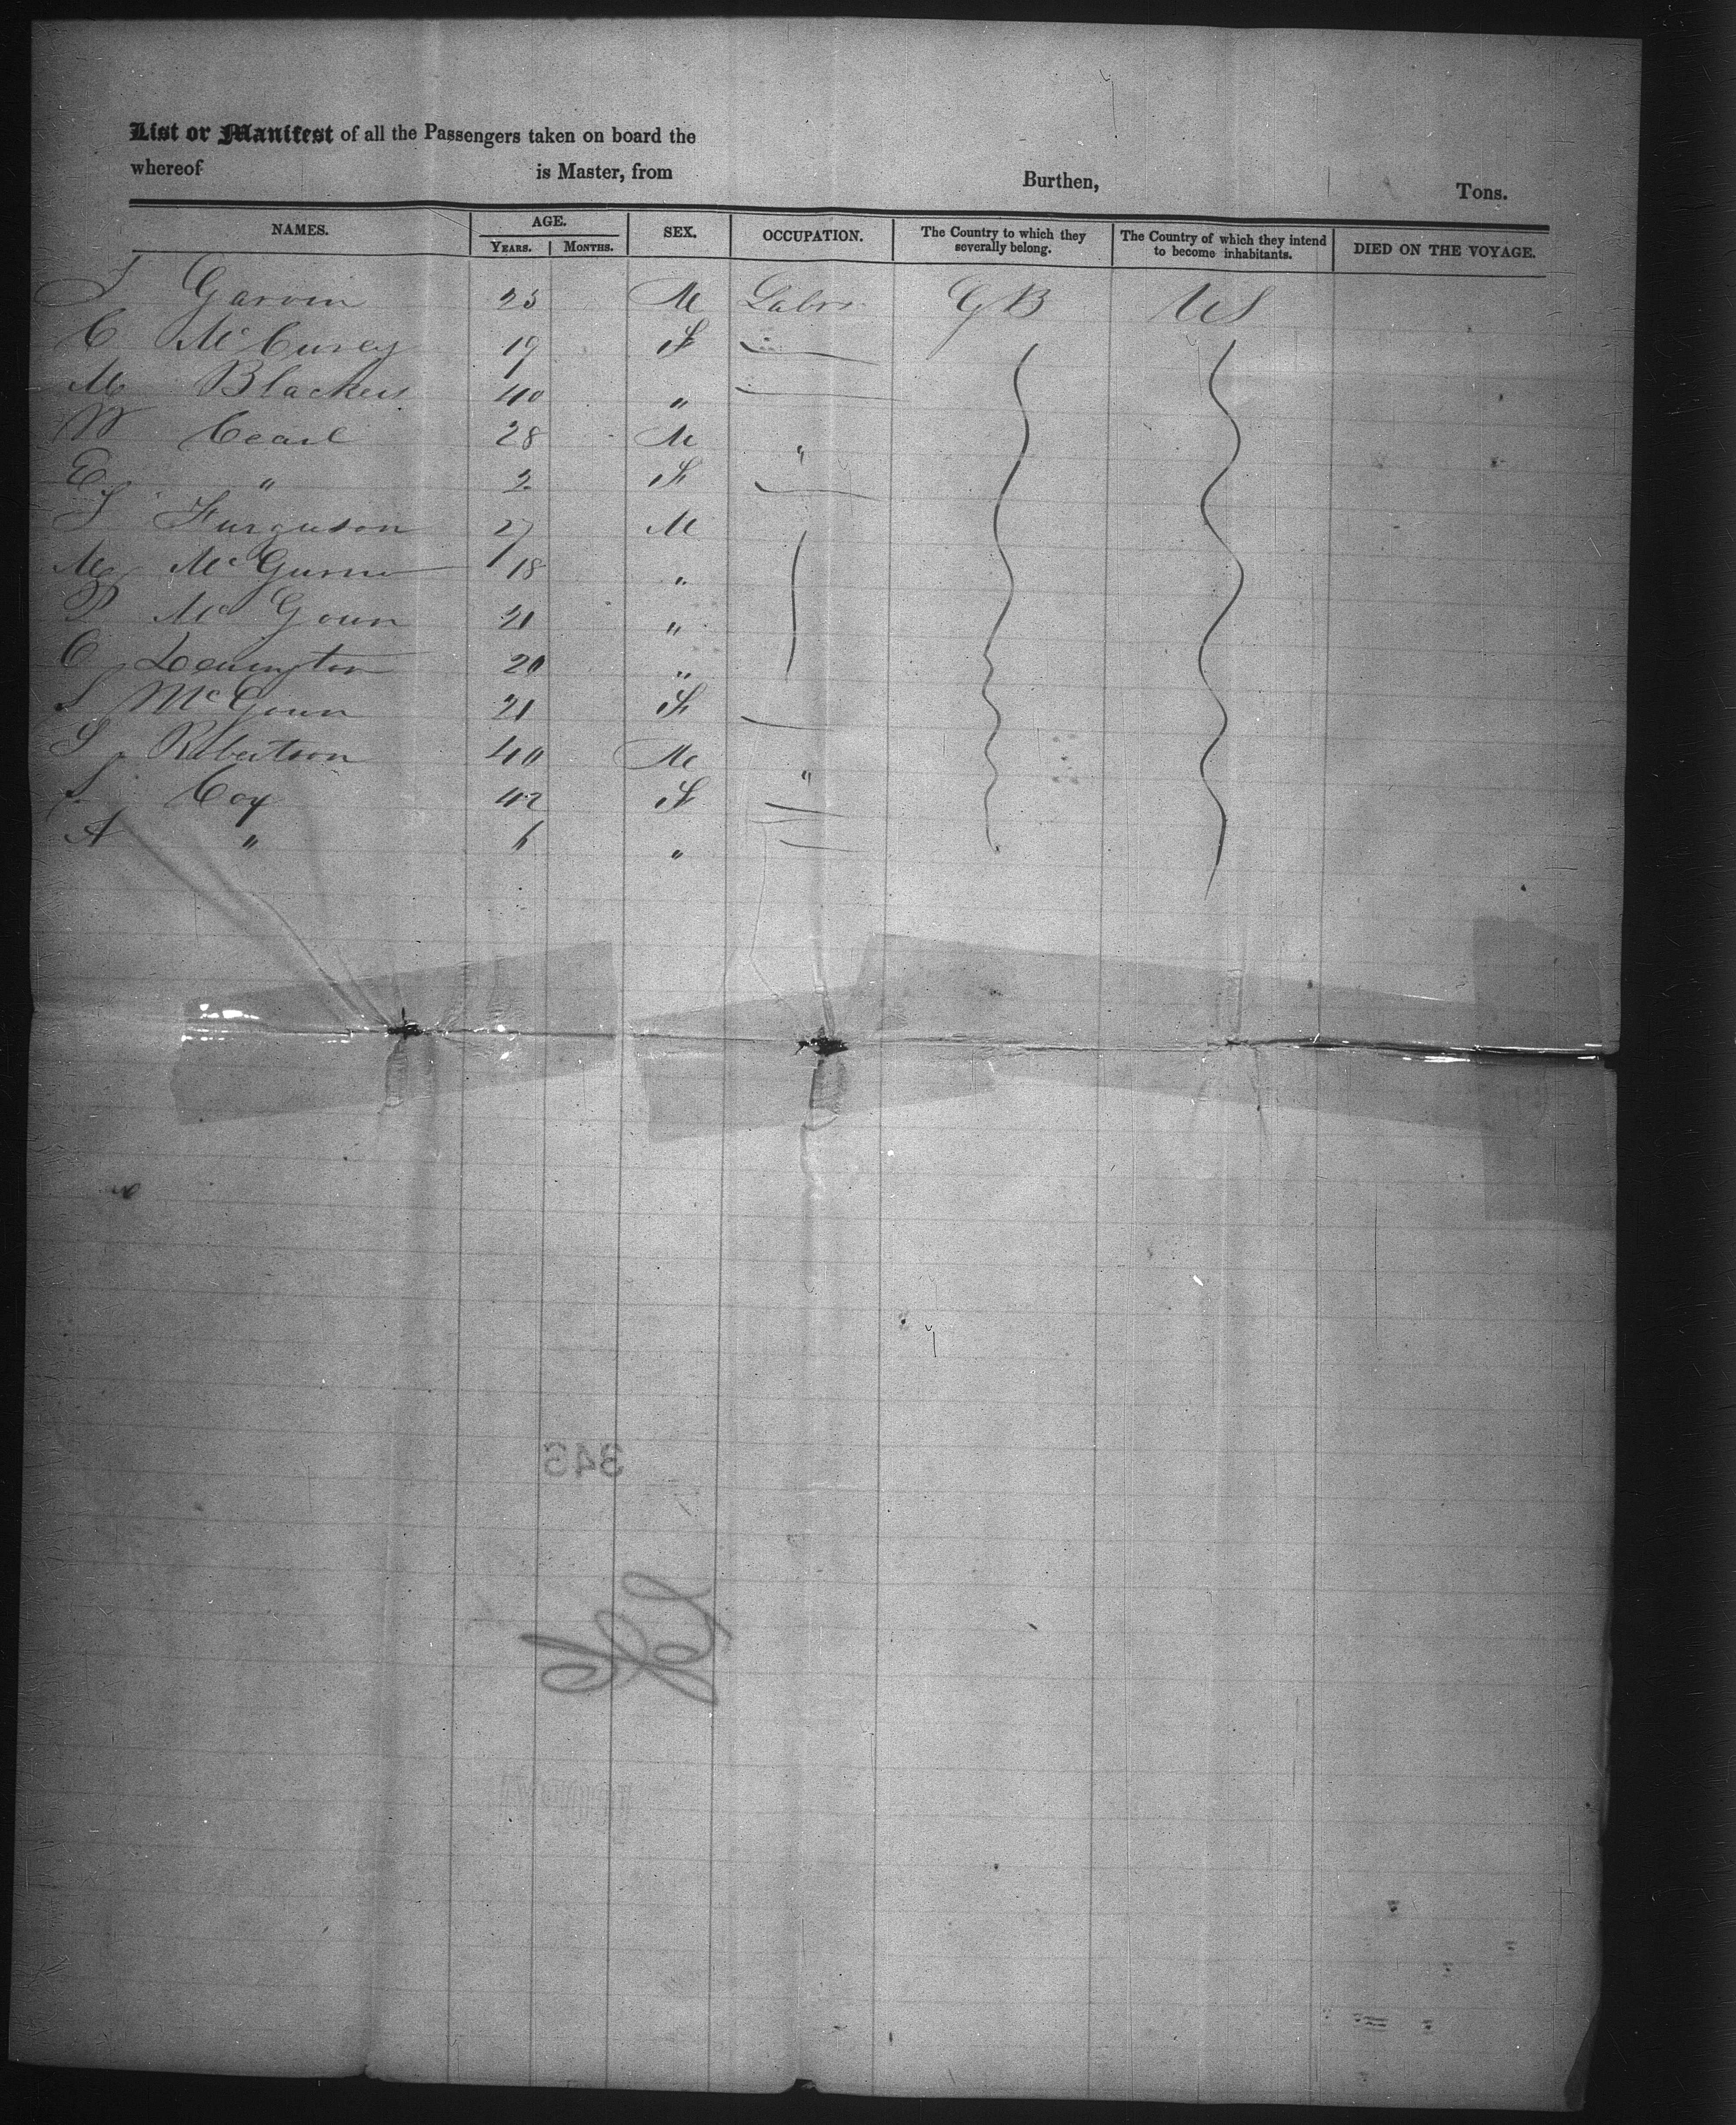 List or Manifest of all the Passengers taken on board the
whereof is Master, from Burthen, Tons.
NAMES. AGE. YEARS. MONTHS. SEX. OCCUPATION. The Country to which they severally belong. The Country of which they intend to become inhabitants. DIED ON THE VOYAGE.
Garvin 25 M Labr GB US
C McCurey 19 F
M 40 "
W 28 M "
E " 2 F
Furguson 27 M
M 18 "
P McGoun 21 "
C 20 "
S McGoun 21 F
Robertson 40 M "
S Cox 42 F
A " 6 "
345